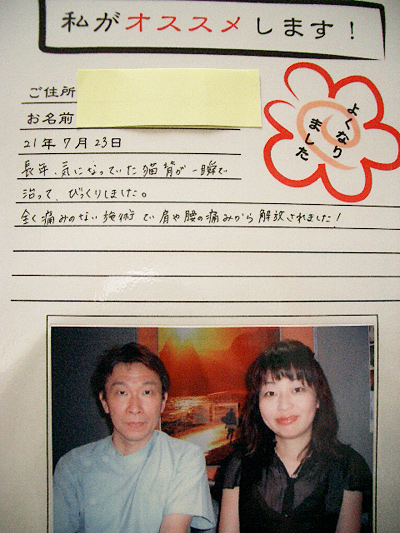 私がオススメします！
よくなり
ました
ご住所
お名前
21年7月23日
長年、気になっていた猫背が一瞬で
治って、びっくりしました。
全く痛みのない施術で肩や腰の痛みから解放されました！